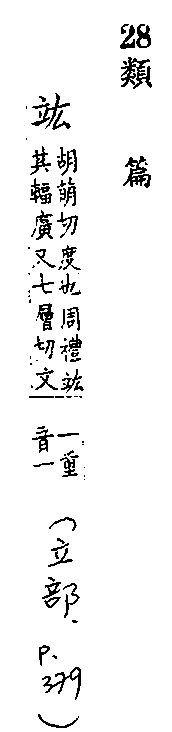 28類篇
竑
胡萌切度也周禮竑
其輻廣又七層切文
一重
音一
(立部、p.379)